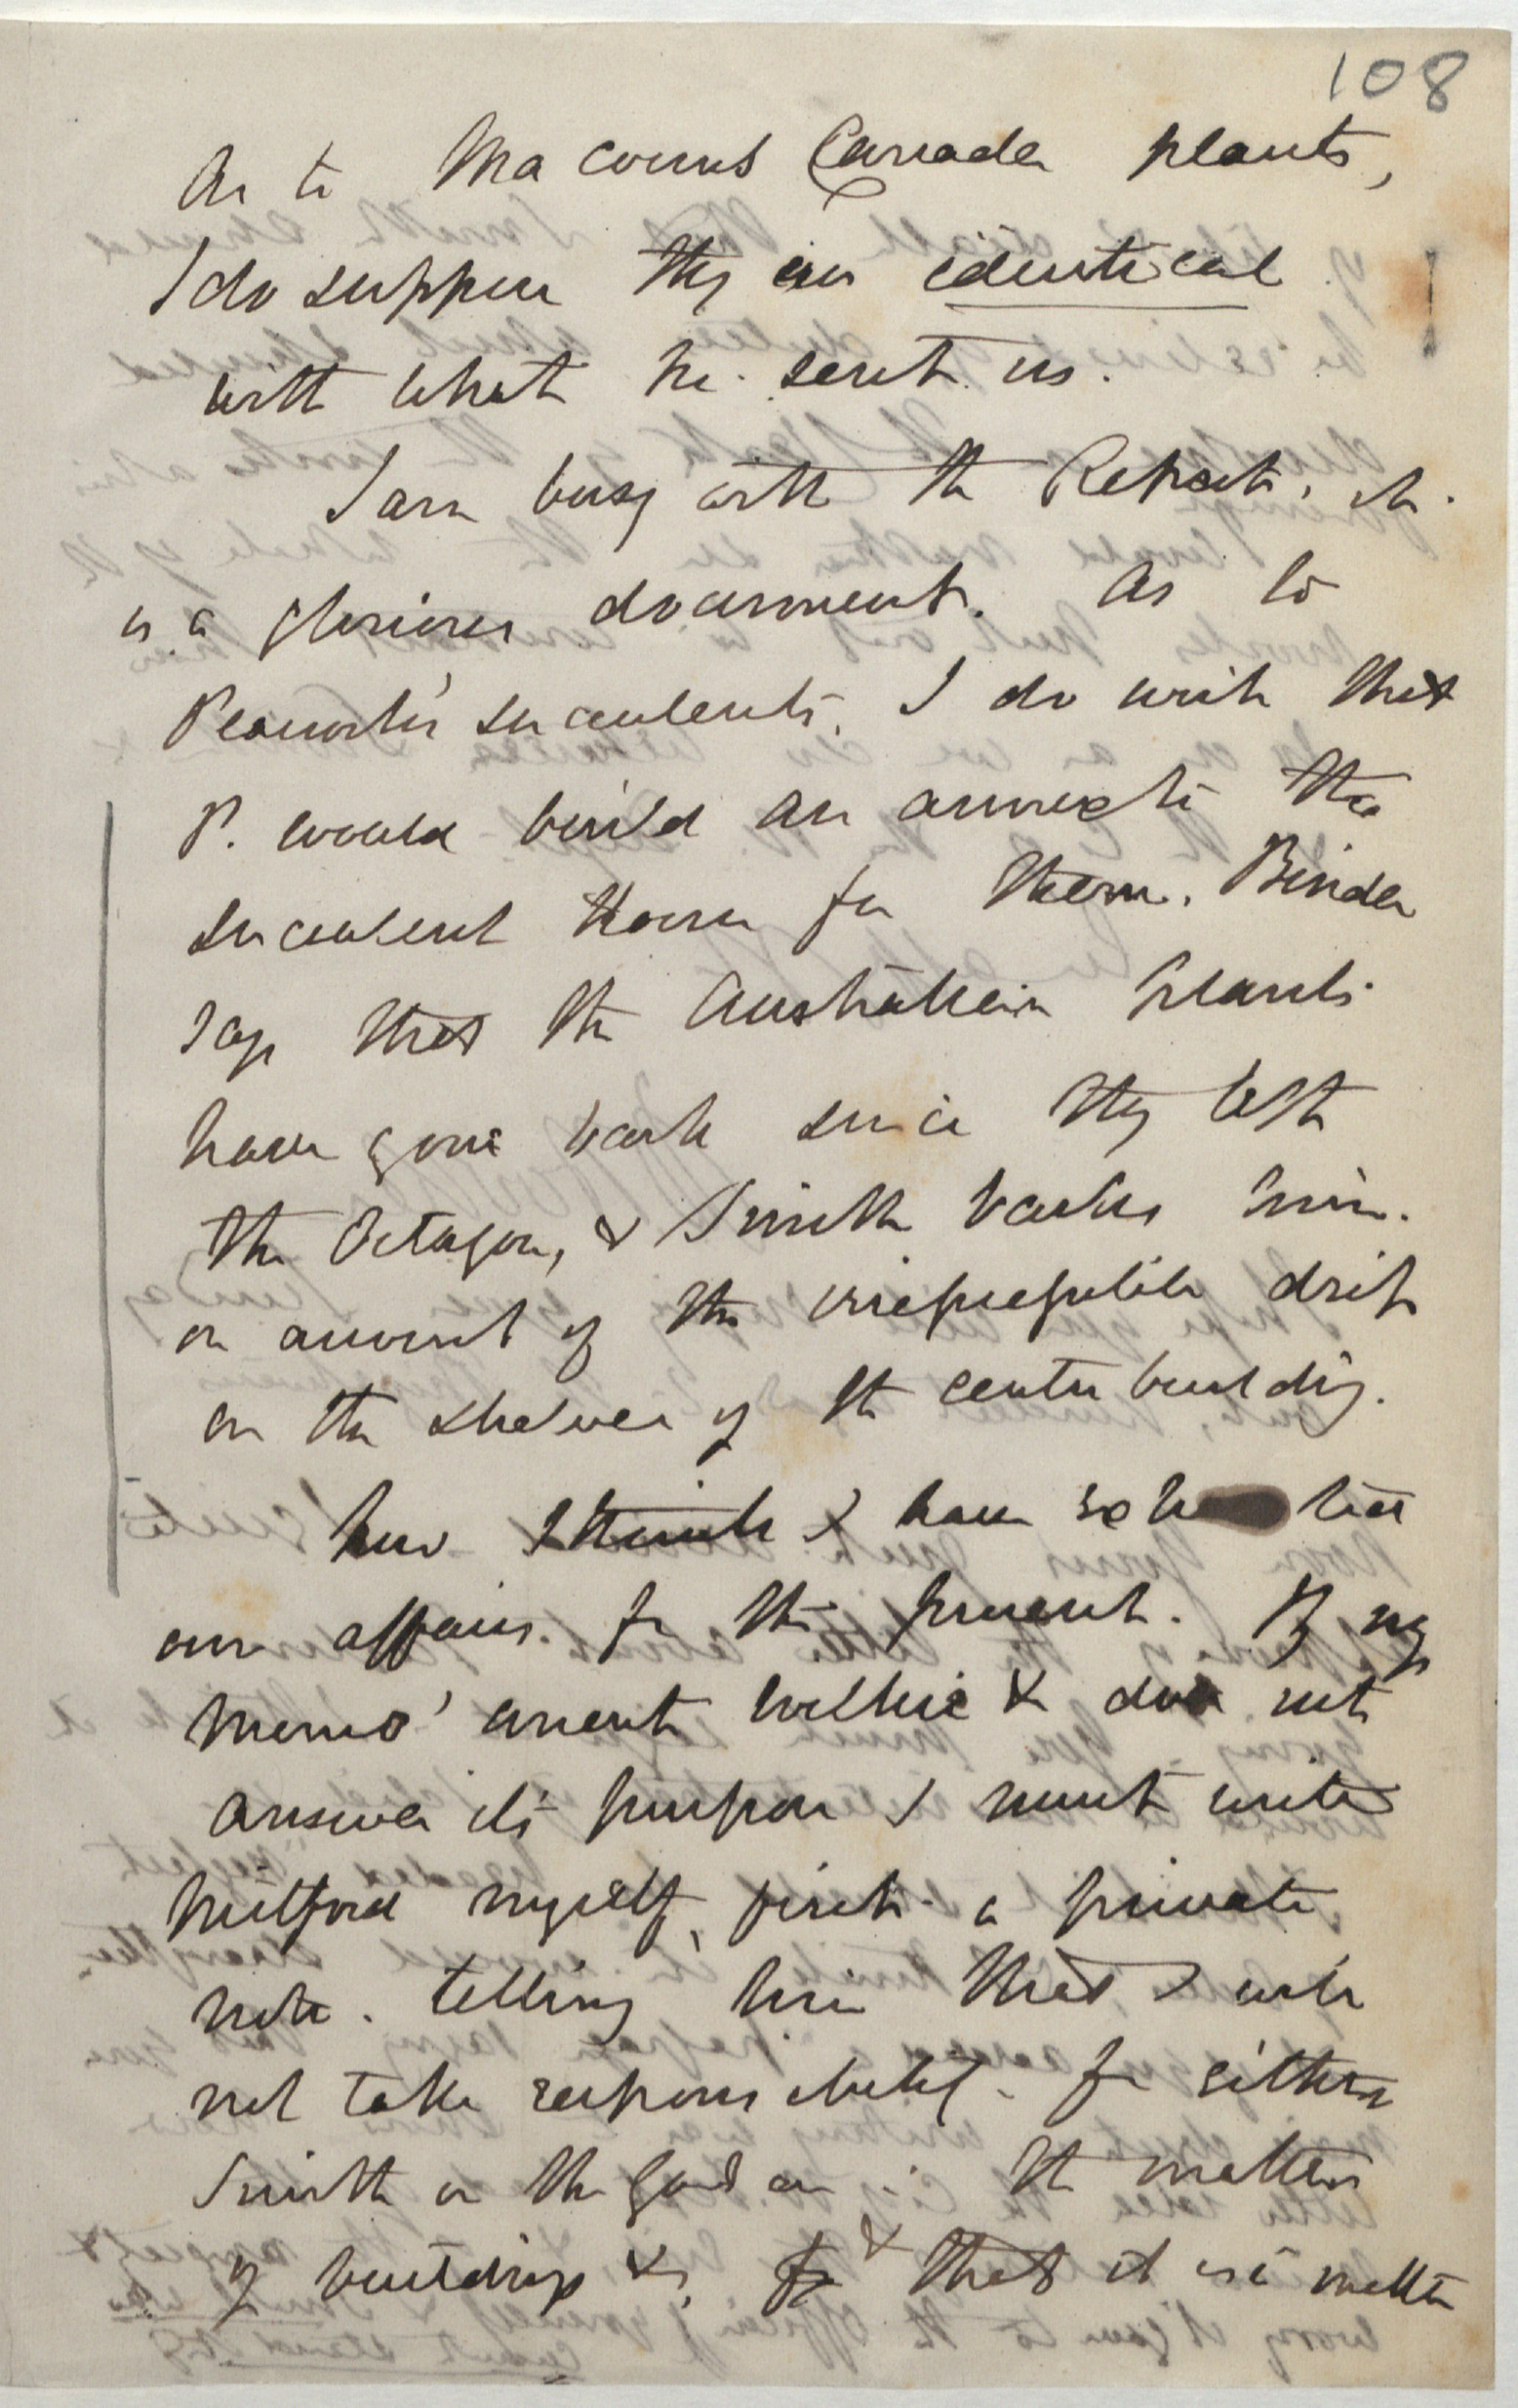 108
As to Macouns Canada plants,
I do suppose they are identical
with what he sent us.
I am busy with the Report, it
is a glorious document. As to
Peacock's succulents, I do wish that
P. would build an annexe to the
succulent House for them. Binder
says that the Australian plants
have gone back since they left
the Octagon, & Smith backs him.
on account of the irrepressible drip
on the shelves of the centre building.
Smith & I have so
our affairs for the present. If my
memo' anent Wilkie & does not
answer its purpose I must write
Mitford myself, first a private
note. telling him that I will
not take responsibility for either
Smith or the Garden in the matter
of buildings &c, & that it is a matter